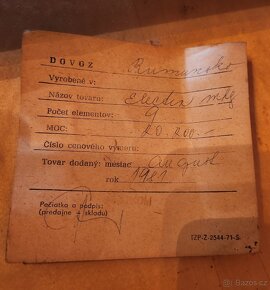 DOVOZ Rumunsko
Vyrobené v:
Názov tovaru:
Počet elementov: 9
MOC: 20 200.-
Číslo cenového výmeru:
Tovar dodaný: mesiac August
rok 1981
Pečiatka a podpis:
(predajne + skladu)
TZP-Z-2544-71-S
Bazos.cz